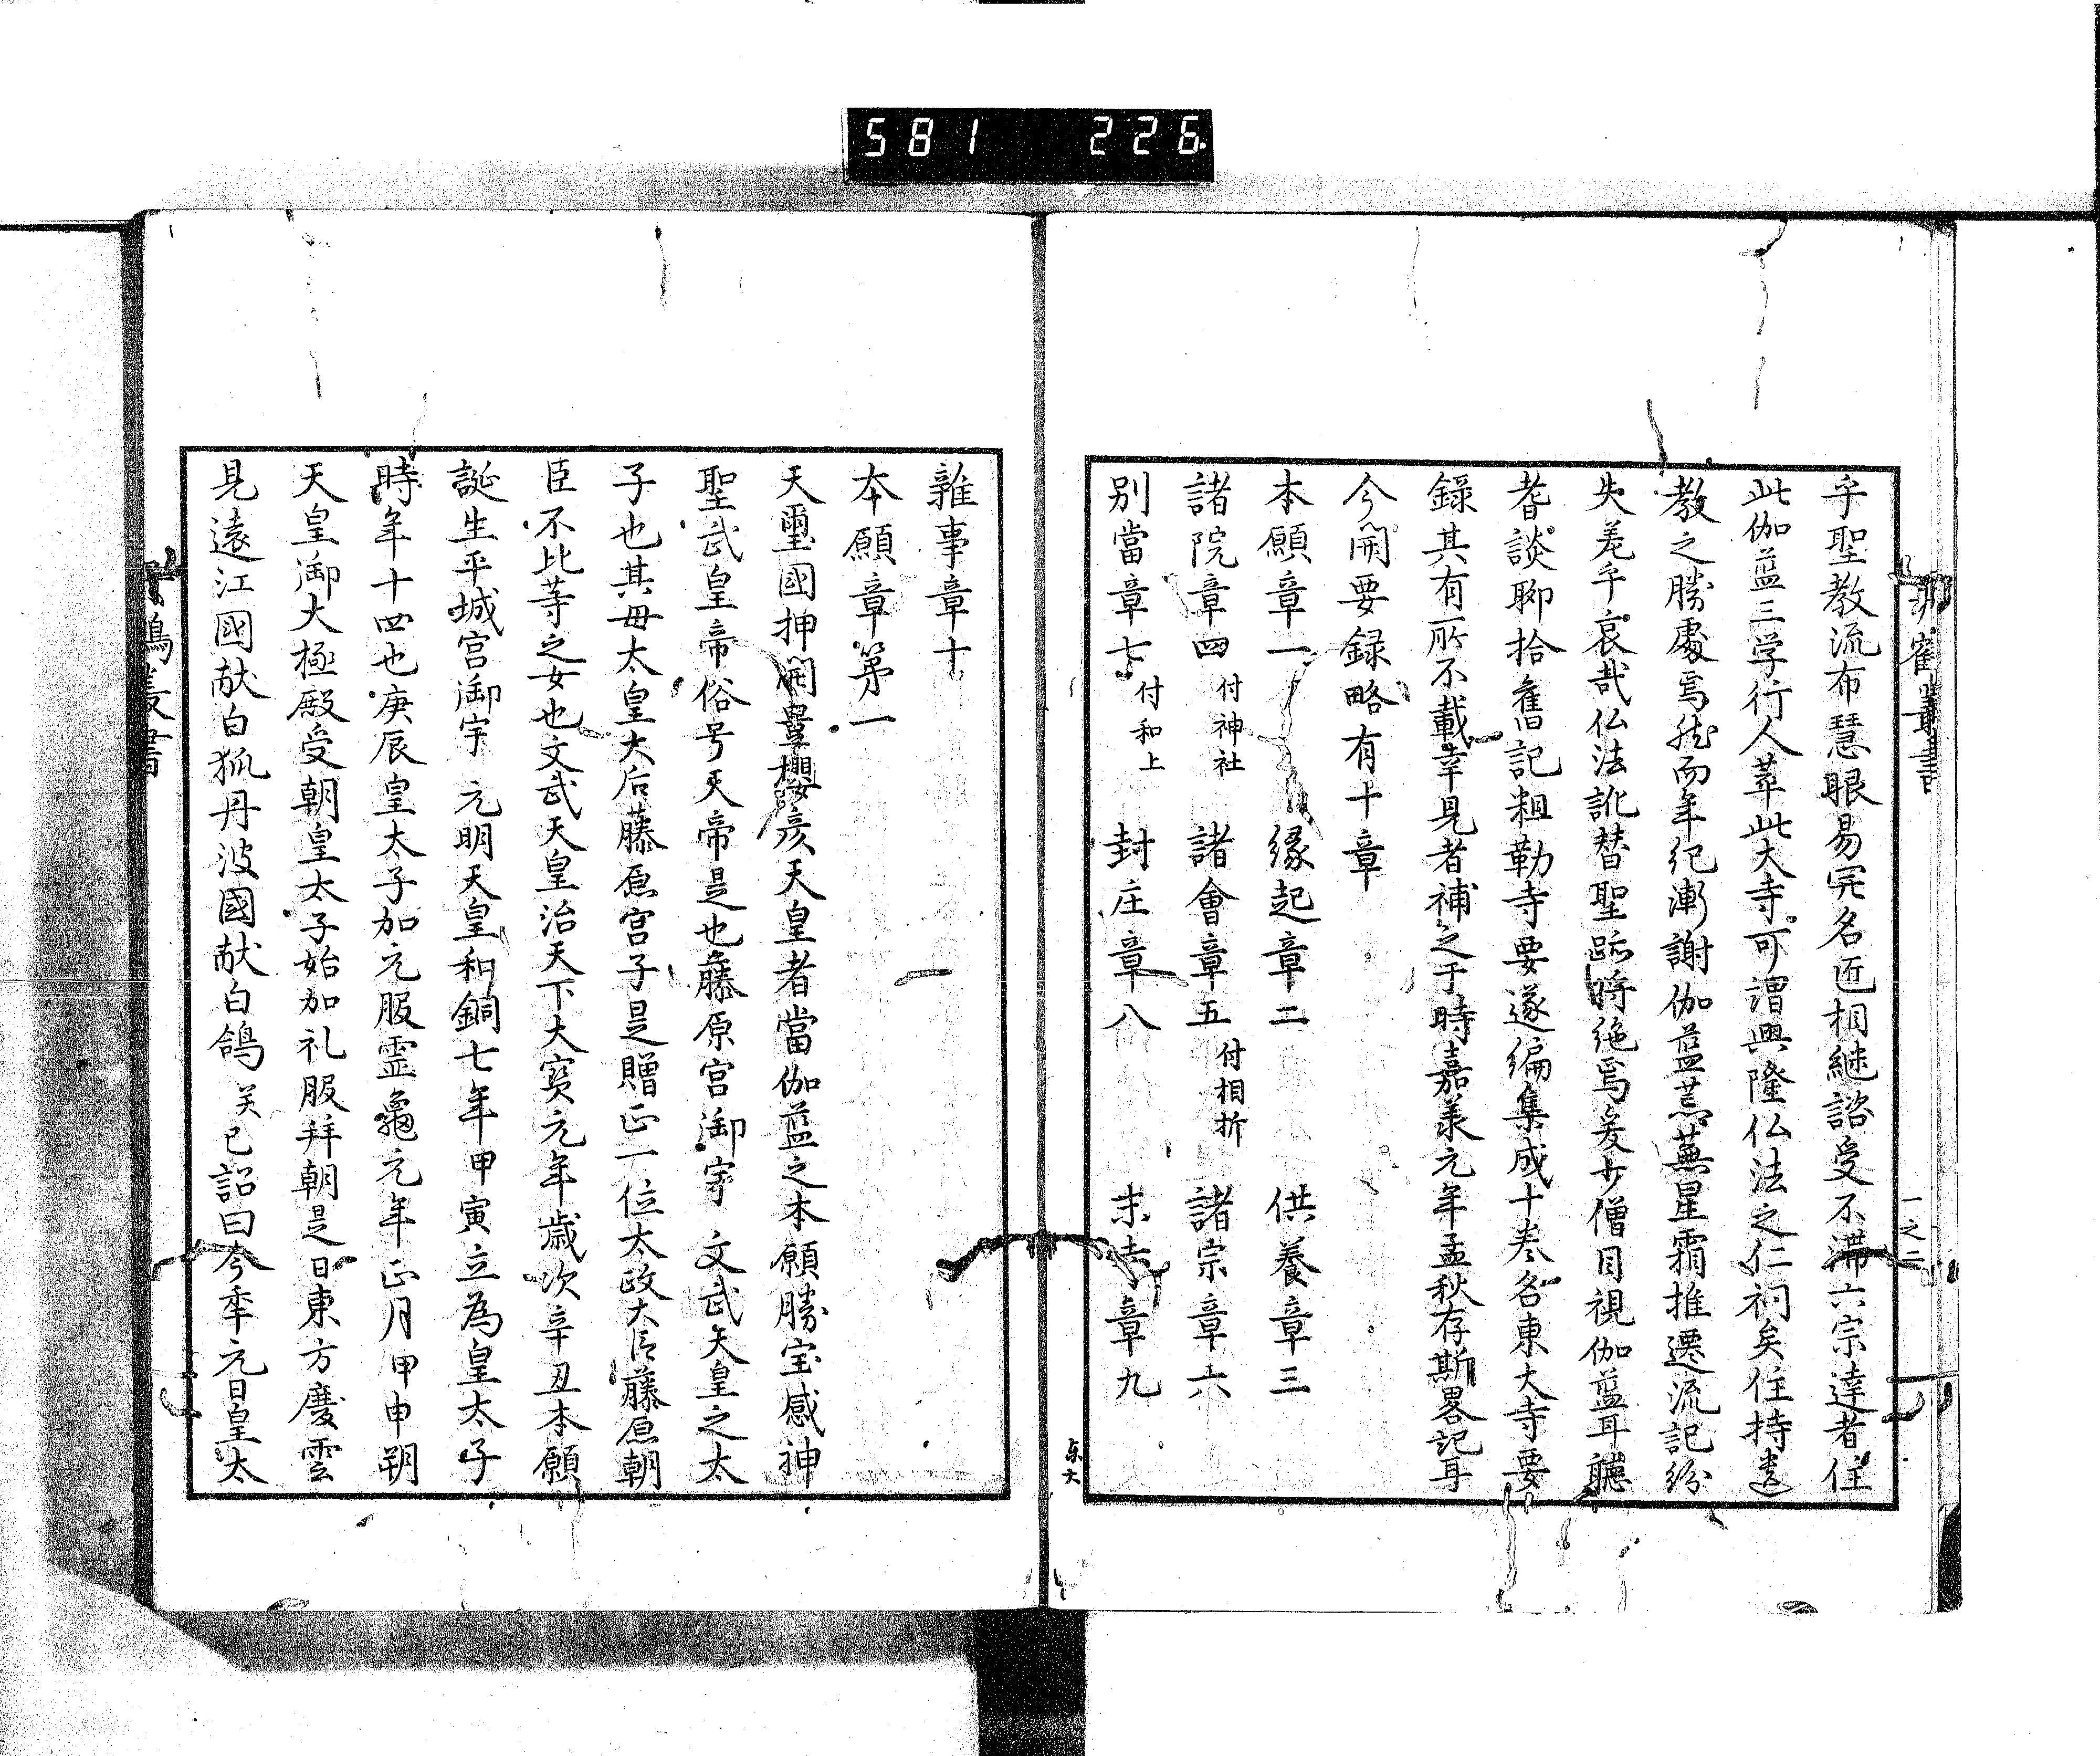 581 226
乎聖教流布慧眼易完名近相継諮受不滞六宗達者住
此伽藍三学行人萃此大寺可謂興隆仏法之仁祠矣住持遺
教之勝處焉然而年紀漸謝伽藍荒蕪星霜推遷流記紛
失嗟乎哀哉仏法訛替聖跡将絶焉爰少僧目視伽藍耳聴
耆談聊拾舊記粗勒寺要遂編集成十巻名東大寺要
錄其有所不載幸見者補之于時嘉承元年孟秋存斯畧記耳
今開要録略有十章
本願章一 縁起章二 供養章三
諸院章四 付神社 諸會章五 付相折 諸宗章六
別當章七 付和上 封庄章八 末寺章九
一之二
雜事章十
本願章第一
天璽國押開豐櫻彦天皇者當伽藍之本願勝宝感神
聖武皇帝俗号天帝是也藤原宮御宇 文武天皇之太
子也其母太皇大后藤原宮子是贈正一位太政大臣藤原朝
臣不比等之女也文武天皇治天下大寳元年歳次辛丑本願
誕生平城宮御宇 元明天皇和銅七年甲寅立為皇太子
時年十四也庚辰皇太子加元服霊龜元年正月甲申朔
天皇御大極殿受朝皇太子始加礼服拜朝是日東方慶雲
見遠江國献白狐丹波國献白鴿 癸巳詔曰今年元日皇太